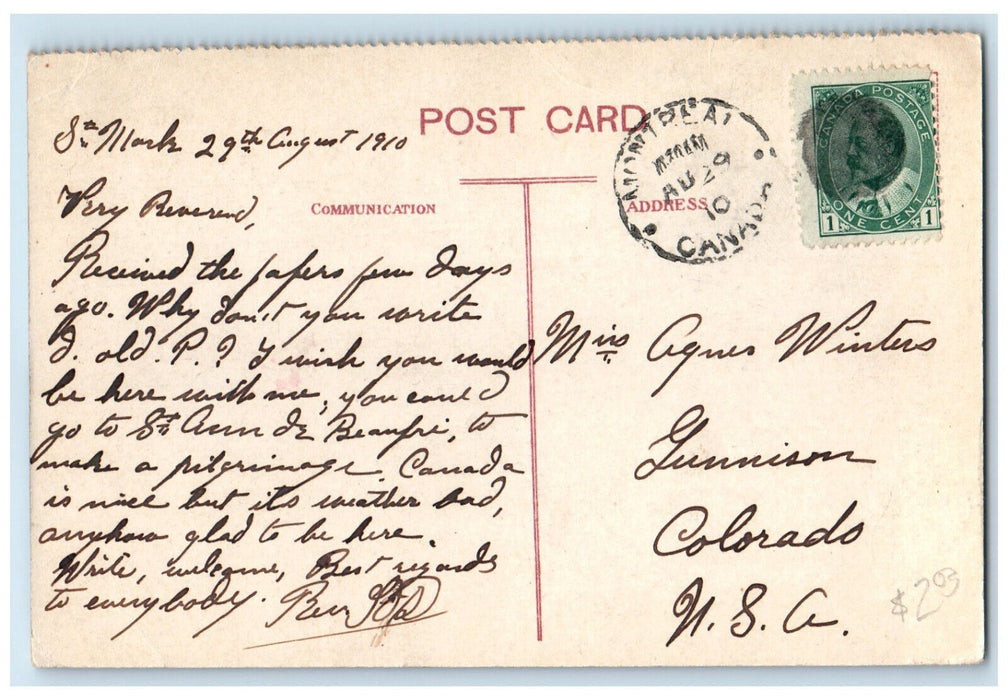 POST CARD
St Mark 29th August 1910
COMMUNICATION
ADDRESS
MONTREAL
AU 29
10
CANADA
CANADA POSTAGE
1 ONE CENT 1
Very Reverend,
Received the papers few days
ago. Why don't you write
d. old. P.? I wish you would
be here with me, you could
go to St Ann de Beaupré, to
make a pilgrimage. Canada
is nice but its weather bad,
anyhow glad to be here.
Write, welcome, Best regards
to everybody. Rev
Miss Agnes Winters
Gunnison
Colorado
U. S. A.
$2.03